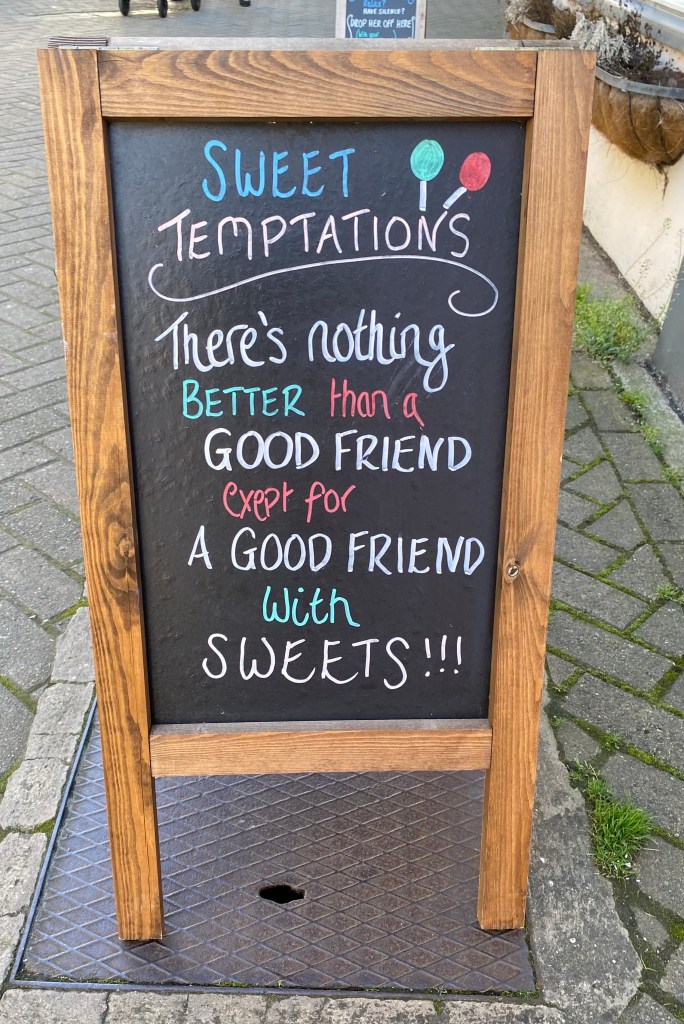 RELAX?
HAVE SILENCE?
DROP HER OFF HERE
SWEET
TEMPTATIONS
There's nothing
BETTER than a
GOOD FRIEND
exept for
A GOOD FRIEND
With
SWEETS!!!